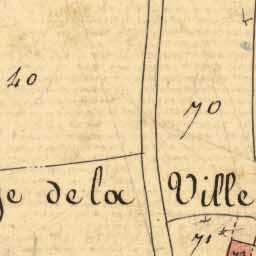 40
70
de la Ville
71